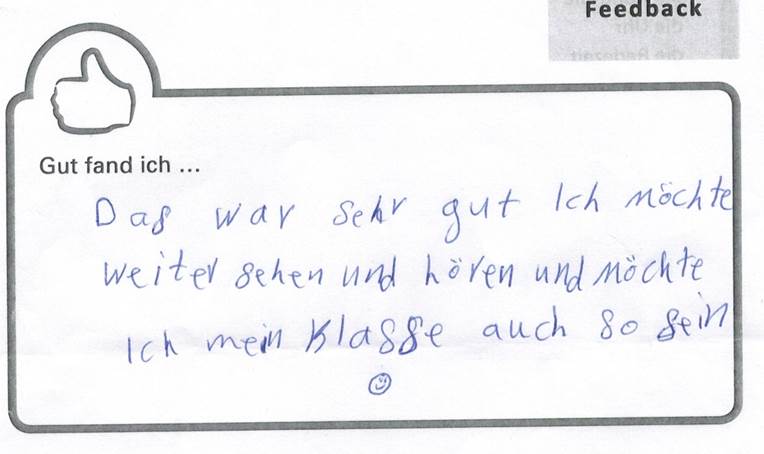 Feedback
Gut fand ich ...
Das war sehr gut Ich möchte
weiter sehen und hören und möchte
Ich mein Klasse auch so sein